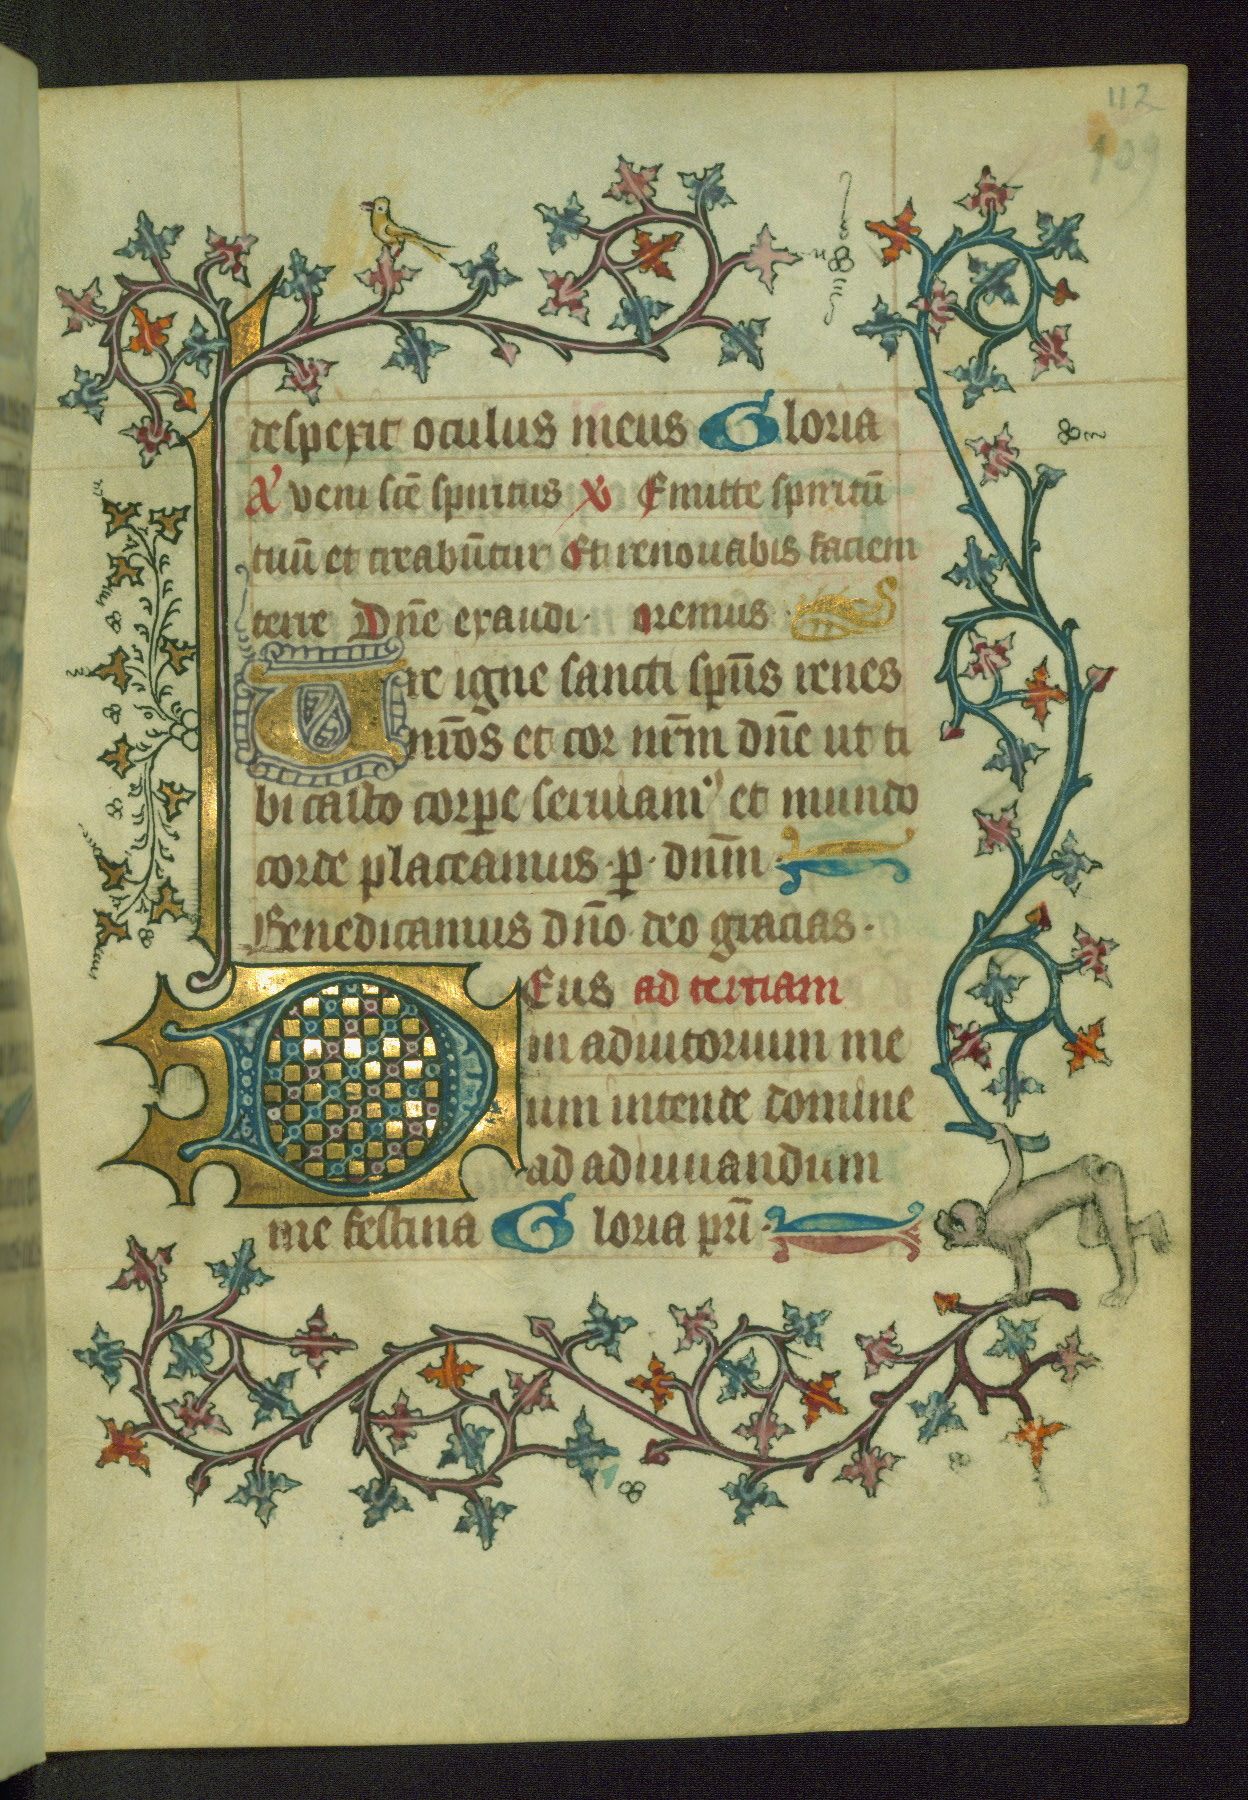 112
109
despexit oculus meus Gloria
a͂ veni scē spiritus v̶ Emitte spiritū
tuū et creabūtur Et renouabis faciem
terre Dn̄e exaudi· oremus
Ure igne sancti sp̄us renes
nr̄os et cor nr̄m dn̄e ut ti
bi casto corpe seruiam' et mundo
corde placeamus · p̱ · dnm̄
Benedicamus dn̄o deo gracias ·
DEus ad tertiam
in adiutorium me
um intende domine
ad adiuuandum
me festina Gloria pr̄i ·